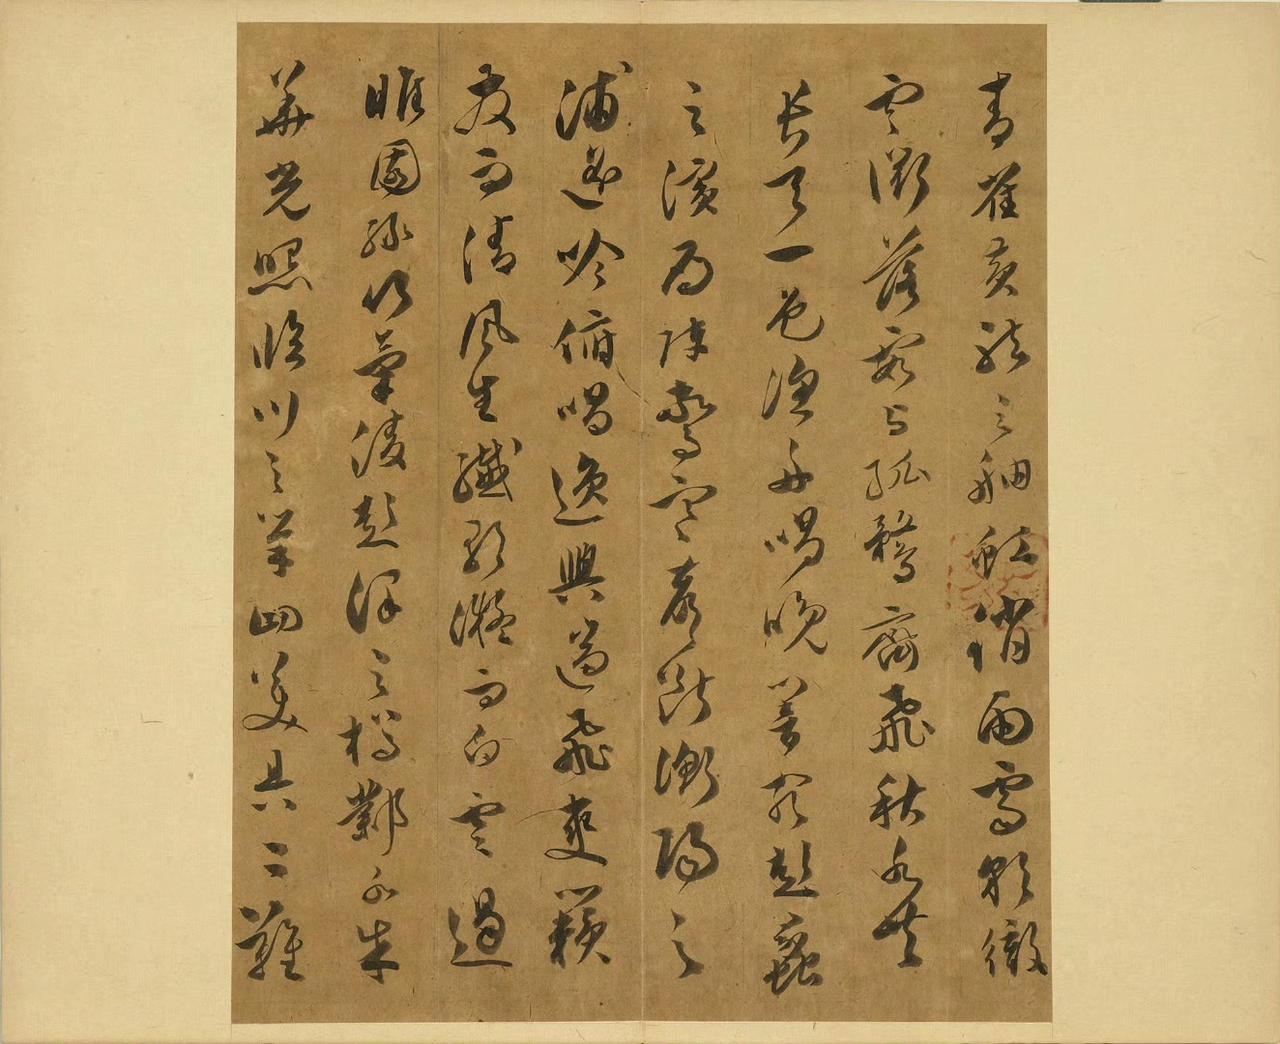 青雀黃龍之舳虹銷雨霽彩徹
雲衢落霞与孤鶩齊飛秋水共
長天一色漁舟唱晚響窮彭蠡
之濱雁陣驚寒聲斷衡陽之
浦遙吟俯唱逸興遄飛爽籟
發而清風生纖歌凝而白雲遏
睢園綠竹氣凌彭澤之樽鄴水朱
華光照臨川之筆四美具二難